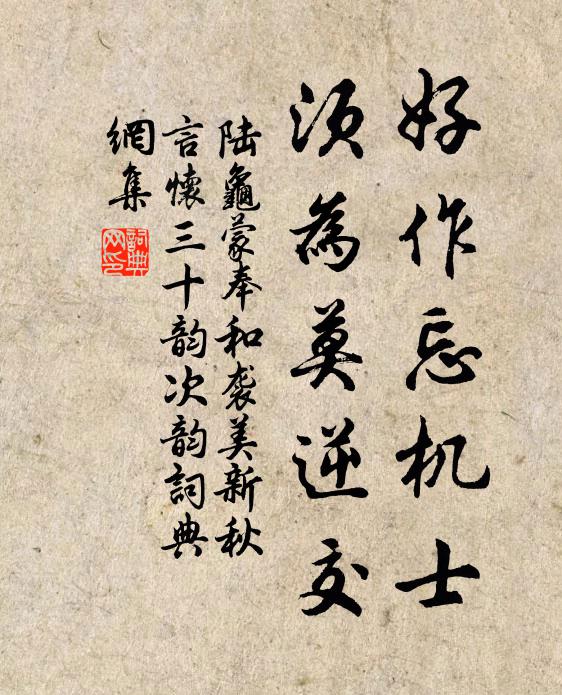 好作忘机士
须為莫逆交
陆龜蒙奉和袭美新秋
言懷三十韵次韵詞典
網集
詞典网印